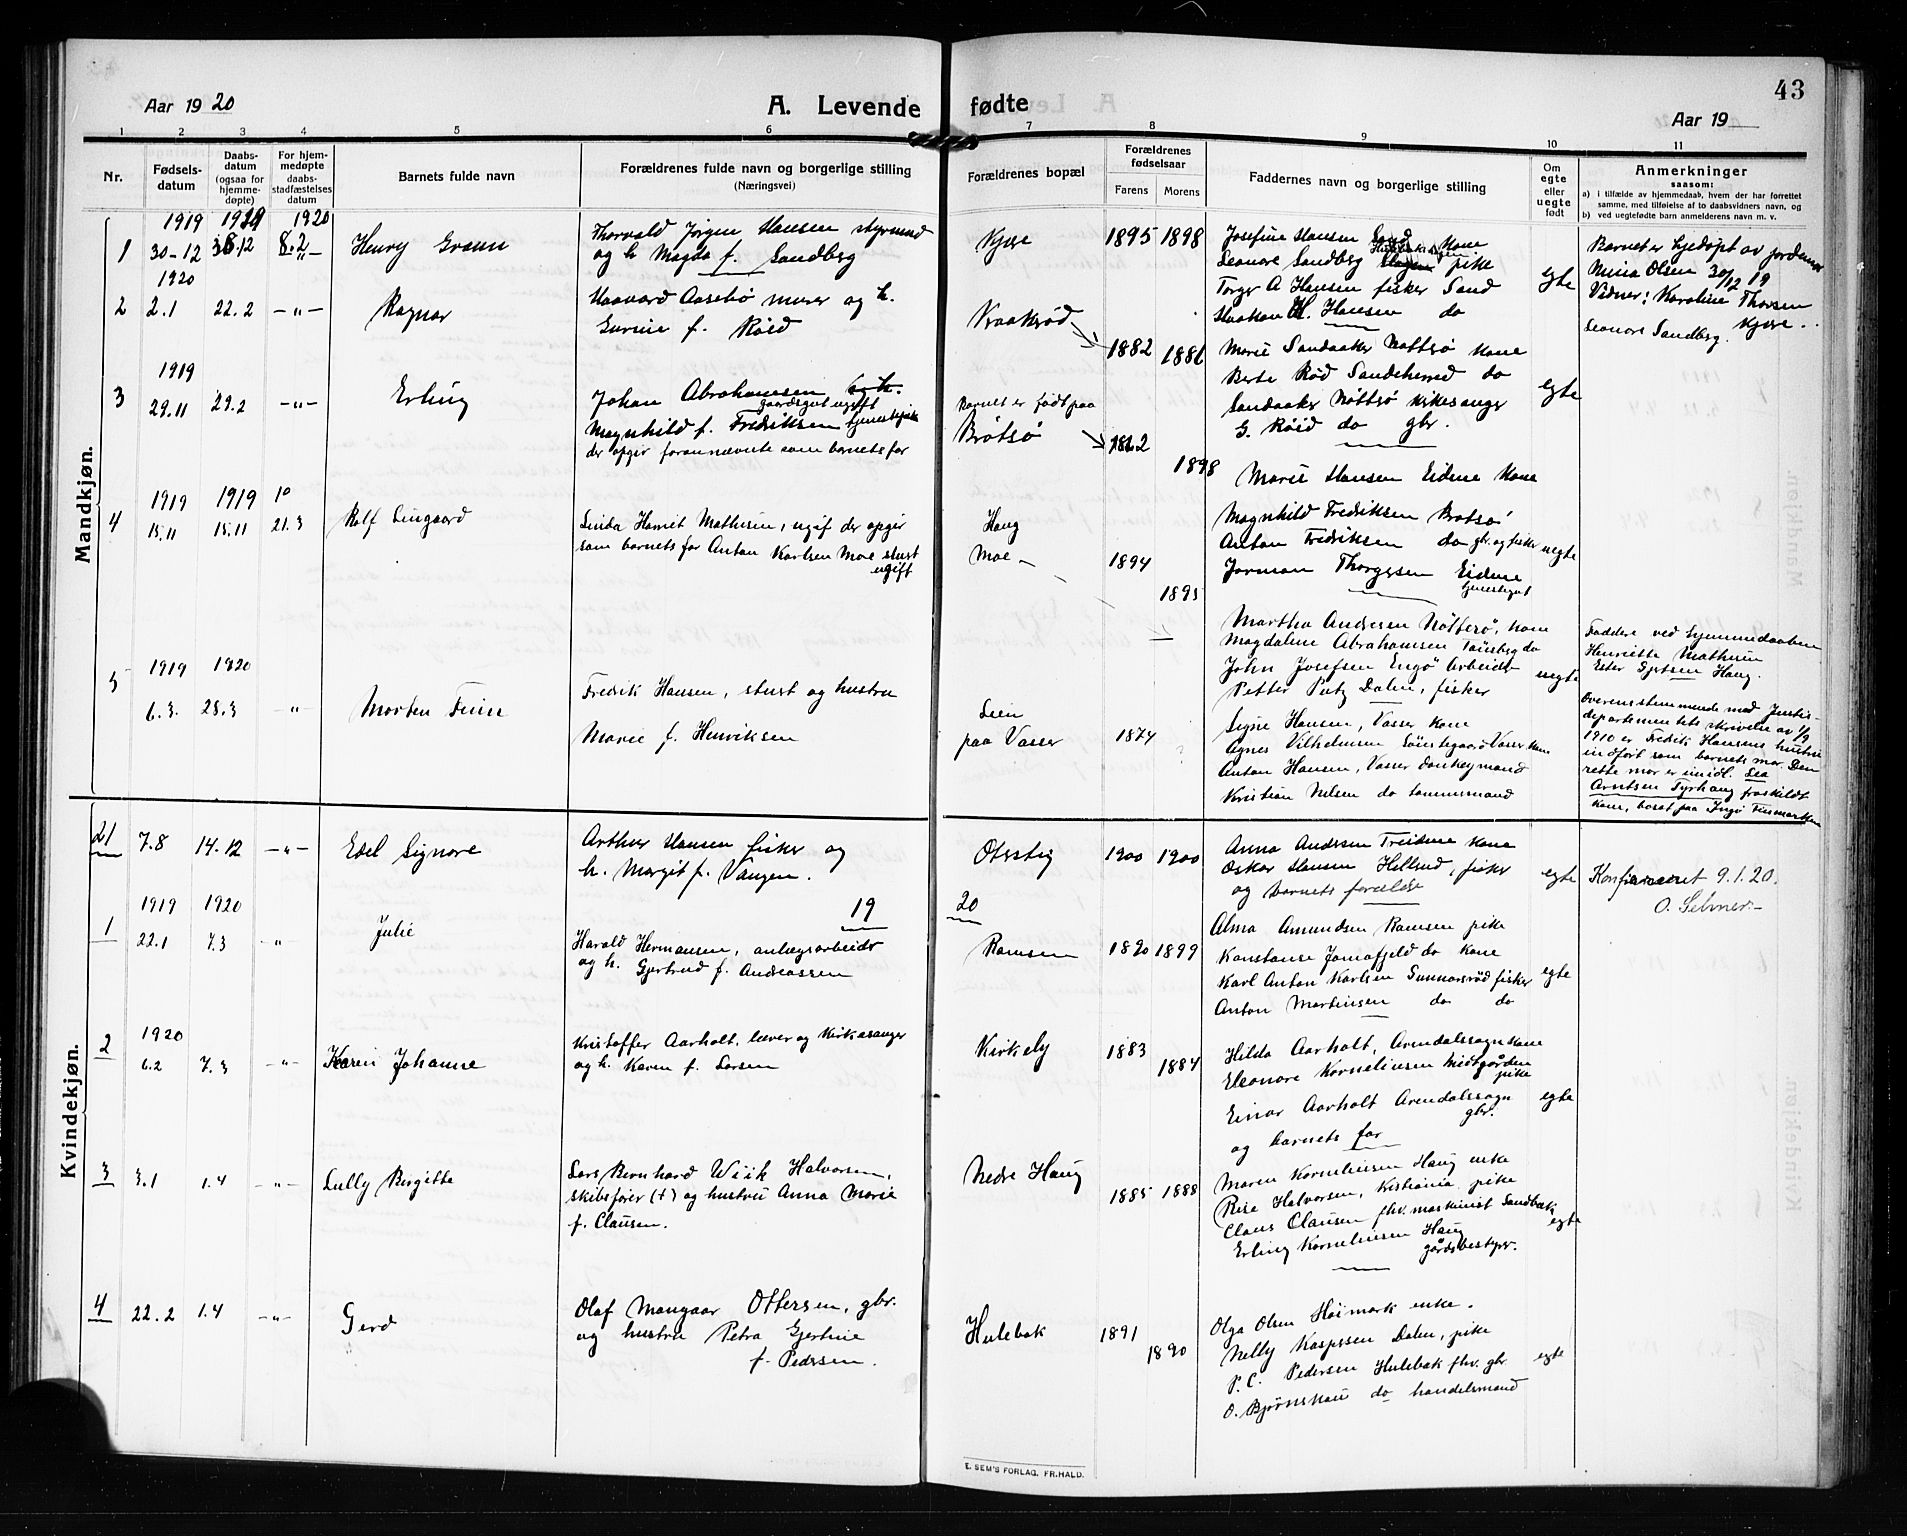 Aar 1920
A. Levende fødte
Aar 19
43
1 2 3 4 5 6 7 8 9 10 11
Nr.
Fødsels-
datum
Daabs-
datum
(ogsaa for
hjemme-
døpte)
For hjem-
medøpte
daabs-
stadfæstelses
datum
Barnets fulde navn
Forældrenes fulde navn og borgerlige stilling
(Næringsvei)
Forældrenes bopæl
Forældrenes
fødselsaar
Farens Morens
Faddernes navn og borgerlige stilling
Om
egte
eller
uegte
født
Anmerkninger
saasom:
a) i tilfælde av hjemmedaab, hvem der har forrettet
samme, med tilføielse af to daabsvidners navn, og
b) ved uegtefødte barn anmelderens navn m. v.
Mandkjøn.
1919 1919 1920
1 30-12 30.12 8.2 Henry
Thorvald Jørgen Hansen styrmand
og h Magda f. Sandberg
Kjære
1895 1898
Josefine Hansen Sand kone
Leonore Sandberg pike
Torger A Hansen fisker Sand
Haakon H. Hansen do
egte
Barnet er hjedøpt av jordemor
Mina Olsen 30/12 19
Vidner: Karoline Thorsen
Kjære.
Leonore Sandberg.
1920
2 2.1 22.2 -"- Ragnar
Haavard Aasebø murer og h.
Gurine f. Røed
Vraakerød
1882 1886
Marie Sandaaker Nøtterø kone
Berte Rød Sandeherred do
Sandaaker Nøtterø kirkesanger
G. Røid do gbr.
egte
1919
3 29.11 29.2 -"- Erling
Johan Abrahamsen og h.
gaardsgut ugift
Magnhild f. Fredriksen tjenestepike
der opgir forannævnte som barnets far
Barnet er født paa
Brøtsø
1898
Marie Hansen Eidene kone
Magnhild Fredriksen Brøtsø
Anton Fredriksen do gbr. og fisker
Jorman Thorgersen Eidene
tjenestegut
uegte
1919 1919 10
4 15.11 15.11 21.3 Rolf Lingaard
Linda Harriet Mathisen, ugif der opgir
som barnets far Anton Karlsen Moe stuert
ugift
Haug
Moe -
1894
1895
Martha Andersen Nøtterø, kone
Magdalene Abrahamsen Tønsberg do
John Josefsen Engø Arbeider
Petter Putz Dalen, fisker
uegte
Faddere ved hjemmedaaben
Henriette Mathisen
Ester Gjertsen Haug.
1919 1920
5 6.3. 28.3 -"- Morten
Fredrik Hansen, stuert og hustru
Marie f. Henriksen
Lien
paa Vasser
1874
?
Signe Hansen, Vasser kone
Agnes Vilhelmsen Sønstegaard Vasser kone
Anton Hansen, Vasser donkeymand
Kristian Nilsen do tømmermand
Overensstemmende med Justis-
departementets skrivelse av 1/9
1910 er Fredik Hansens hustru
indført som barnets mor. Den
rette mor er imidl. Lea
Arntsen Tyrhaug fraskildt
kone, bosat paa Ingø Finmarken
Kvindekjøn.
21 7.8 14.12 -"- Edel Signore
Arthur Hansen fisker og
h. Margit f. Vangen.
Oterstig
1900 1900
Anna Andersen Treidene kone
Oskar Hansen Hellerud, fisker
og barnets forældre
egte
Konfereret 9.1.20.
O. Selmer-
19
20
1919 1920
1 22.1 7.3 -"- Julie
Harald Hermansen, anlægsarbeider
og h. Gjertrud f. Andreassen
Ramsen
1890 1899
Alma Amundsen Ramsen pike
Konstanse Jomafjeld do kone
Karl Anton Karlsen Gunnarsrød fisker
Anton Martinsen do do
egte
1920
2 6.2 7.3 -"- Karen Johanne
Kristoffer Aarholt, lærer og Kirkesanger
og h. Karen f. Larsen
Kirkely
1883 1884
Hilda Aarholt, Arendalssogn kone
Eleonore Kornelinsen Midtgården
pike
Einar Aarholt Arendalssogn
gbr.
og barnets far
egte
3 3.1 1.4 -"- Lully Birgitte
Lars Bernhard Wiik Halvorsen,
skibsfører (†) og hustru Anna Marie
f. Clausen.
Nedre Haug
1885 1888
Maren Kornelinsen Haug enke
Rise Halvorsen, Kristiania pike
Claus Clausen fhv. maskinist Sandbak
Erling Kornelinsen Haug
gårdsbestyrer.
egte
4 22.2 1.4 -"- Gerd
Olaf Mangaar Ottersen, gbr.
og hustru Petra Gjertine
f. Pedersen.
Hulebak
1891
1890
Olga Olsen Høimark enke.
Nelly Kaspersen Dalen, pike
P. C. Pedersen Hulebak fhv. gbr
O. Bjønnskau do handelsmand
egte
E. SEM'S FORLAG, FR.HALD.